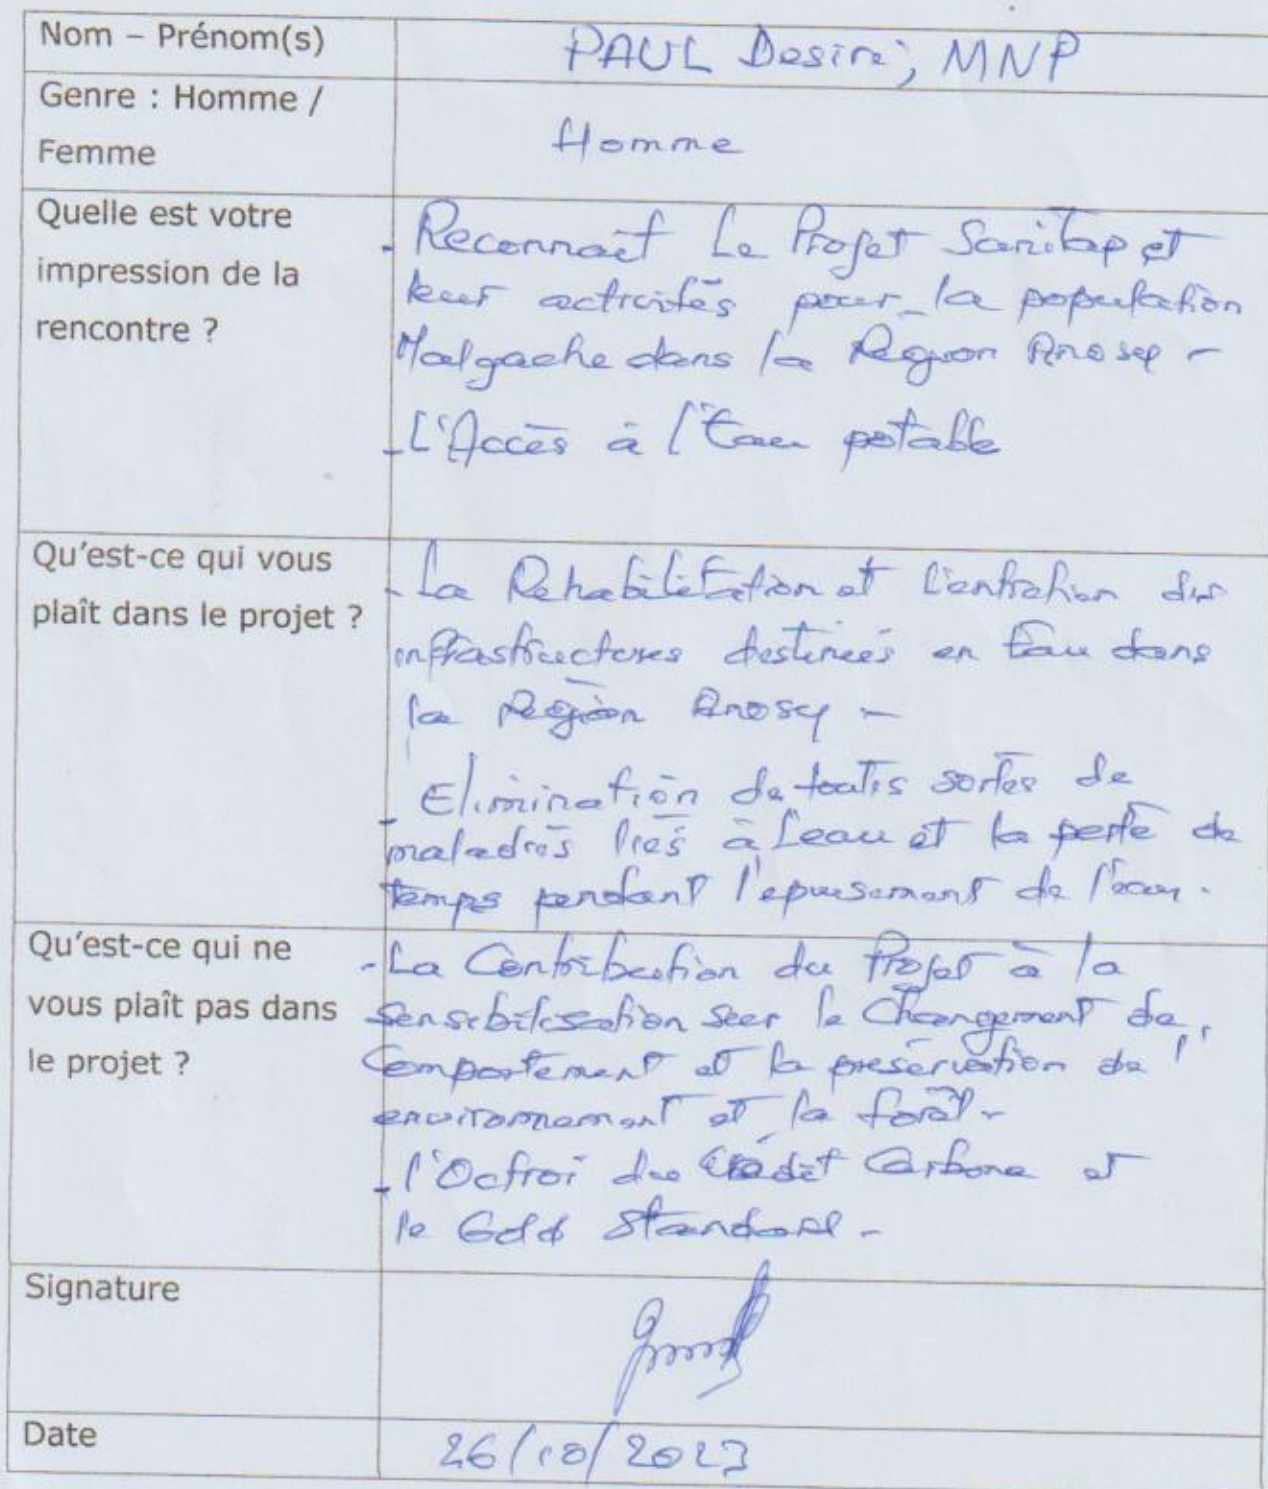 Nom – Prénom(s)
PAUL Desiré, MNP
Genre : Homme /
Femme
Homme
Quelle est votre
impression de la
rencontre ?
- Reconnaît Le Projet Sanitap et
leur activités pour la population
Malgache dans la Région Anosy -
- L'Accès à l'Eau potable
Qu'est-ce qui vous
plaît dans le projet ?
- La Rehabilitation et l'entretien des
infrastructures destinées en Eau dans
la Région Anosy -
- Elimination de toutes sortes de
maladies liés à l'eau et la perte de
temps pendant l'epuisement de l'eau.
Qu'est-ce qui ne
vous plaît pas dans
le projet ?
- La Contribution du Projet à la
Sensibilisation sur le Changement de
Comportement et la préservation de l'
environnement et la forêt -
- l'Octroi du Crédit Carbone et
le Gold Standard -
Signature
Date
26/10/2023